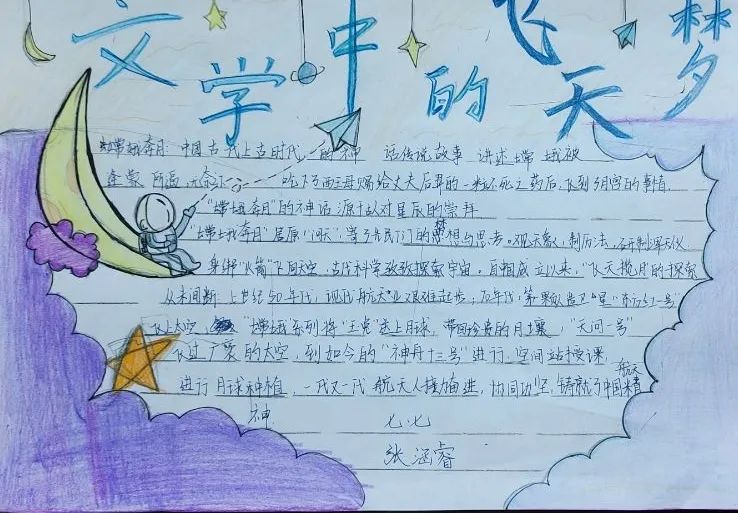 文学中的飞天梦
嫦娥奔月 中国古代上古时代 的神 话传说故事 讲述嫦娥被
逢蒙所逼 无奈下 吃下了西王母赐给丈夫后羿的一粒不死之药后,飞到月宫的事情
"嫦娥奔月"的神话源于以对星辰的崇拜
"嫦娥奔月" 屈原"问天",寄了古民们的梦想与思考。观天象,制历法,
身绑"火箭"飞向天空,古代科学致探索宇宙。自相成立以来,"飞天揽月"的探索
从未间断 上世纪50年代,现代航天业艰难起步;70年代,第一颗 卫"星"东方红一号"
飞上太空, "嫦娥系列将"玉兔"送上月球,带回珍贵的月壤,"天问一号"
飞过广袤的太空,到如今的"神舟十三号"进行,空间站授课,
进行月球种植,一代又一代航天人接力奋进,协同攻坚,铸就了中国航天精
神 七七
张涵睿